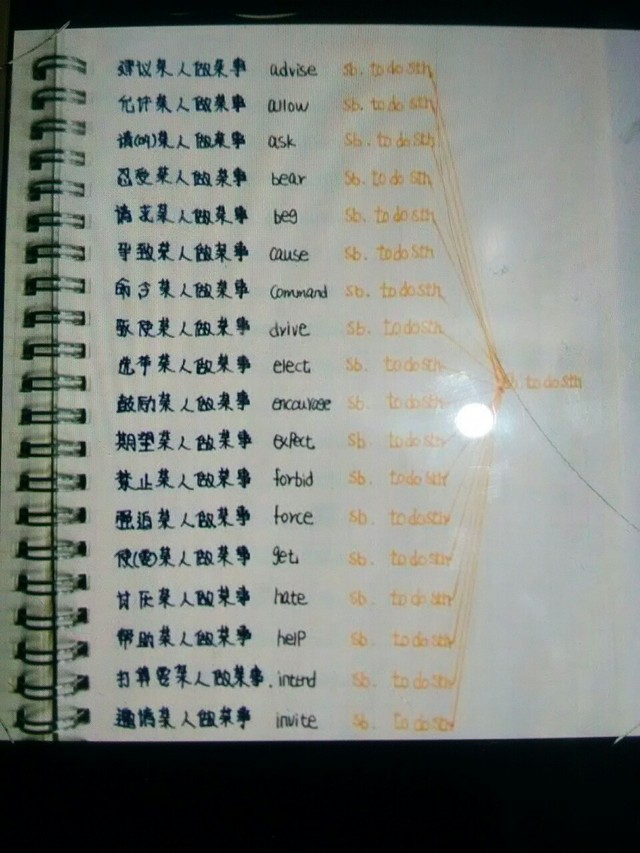 建议某人做某事 advise sb. to do sth
允许某人做某事 allow sb. to do sth
请(叫)某人做某事 ask sb. to do sth
忍受某人做某事 bear sb. to do sth
请求某人做某事 beg sb. to do sth
导致某人做某事 cause sb. to do sth
命令某人做某事 command sb. to do sth
驱使某人做某事 drive sb. to do sth
选举某人做某事 elect sb. to do sth
sb. to do sth
鼓励某人做某事 encourage sb. to do sth
期望某人做某事 expect sb. to do sth
禁止某人做某事 forbid sb. to do sth
强迫某人做某事 force sb. to do sth
使(要)某人做某事 get sb. to do sth
讨厌某人做某事 hate sb. to do sth
帮助某人做某事 help sb. to do sth
打算要某人做某事. intend sb. to do sth
邀请某人做某事 invite sb. to do sth